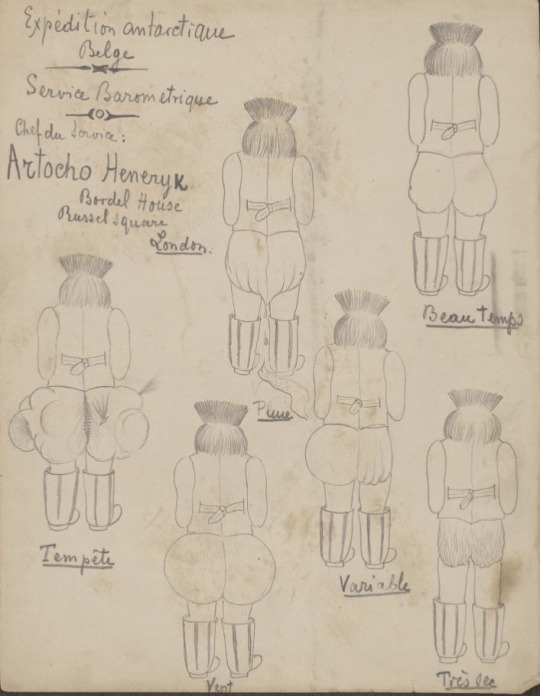 Expédition antarctique
Belge
Service Barometrique
Chef du Service:
Artocho Heneryk
Bordel House
Russel square
London.
Beau temps
Pluie
Tempête
Variable
Vent
Très sec